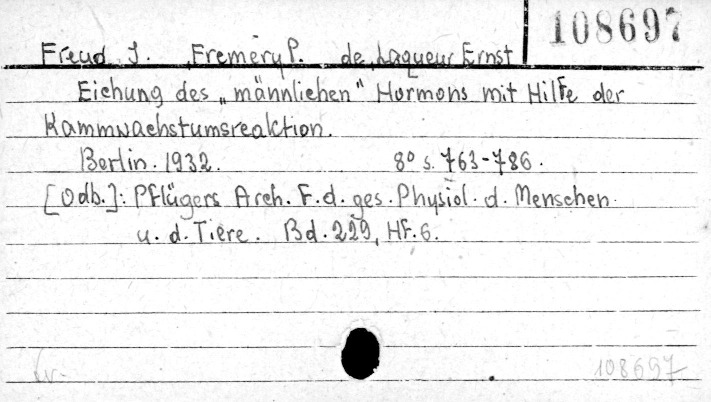 108697
Freud J. Fremery P. de, Laqueur Ernst
Eichung des „männlichen" Hormons mit Hilfe der
Kammwachstumsreaktion.
Berlin. 1932. 8° s. 763-786.
[Odb.]: Pflügers Arch. F. d. ges. Physiol. d. Menschen
u. d. Tiere. Bd. 229, Hf. 6.
108697